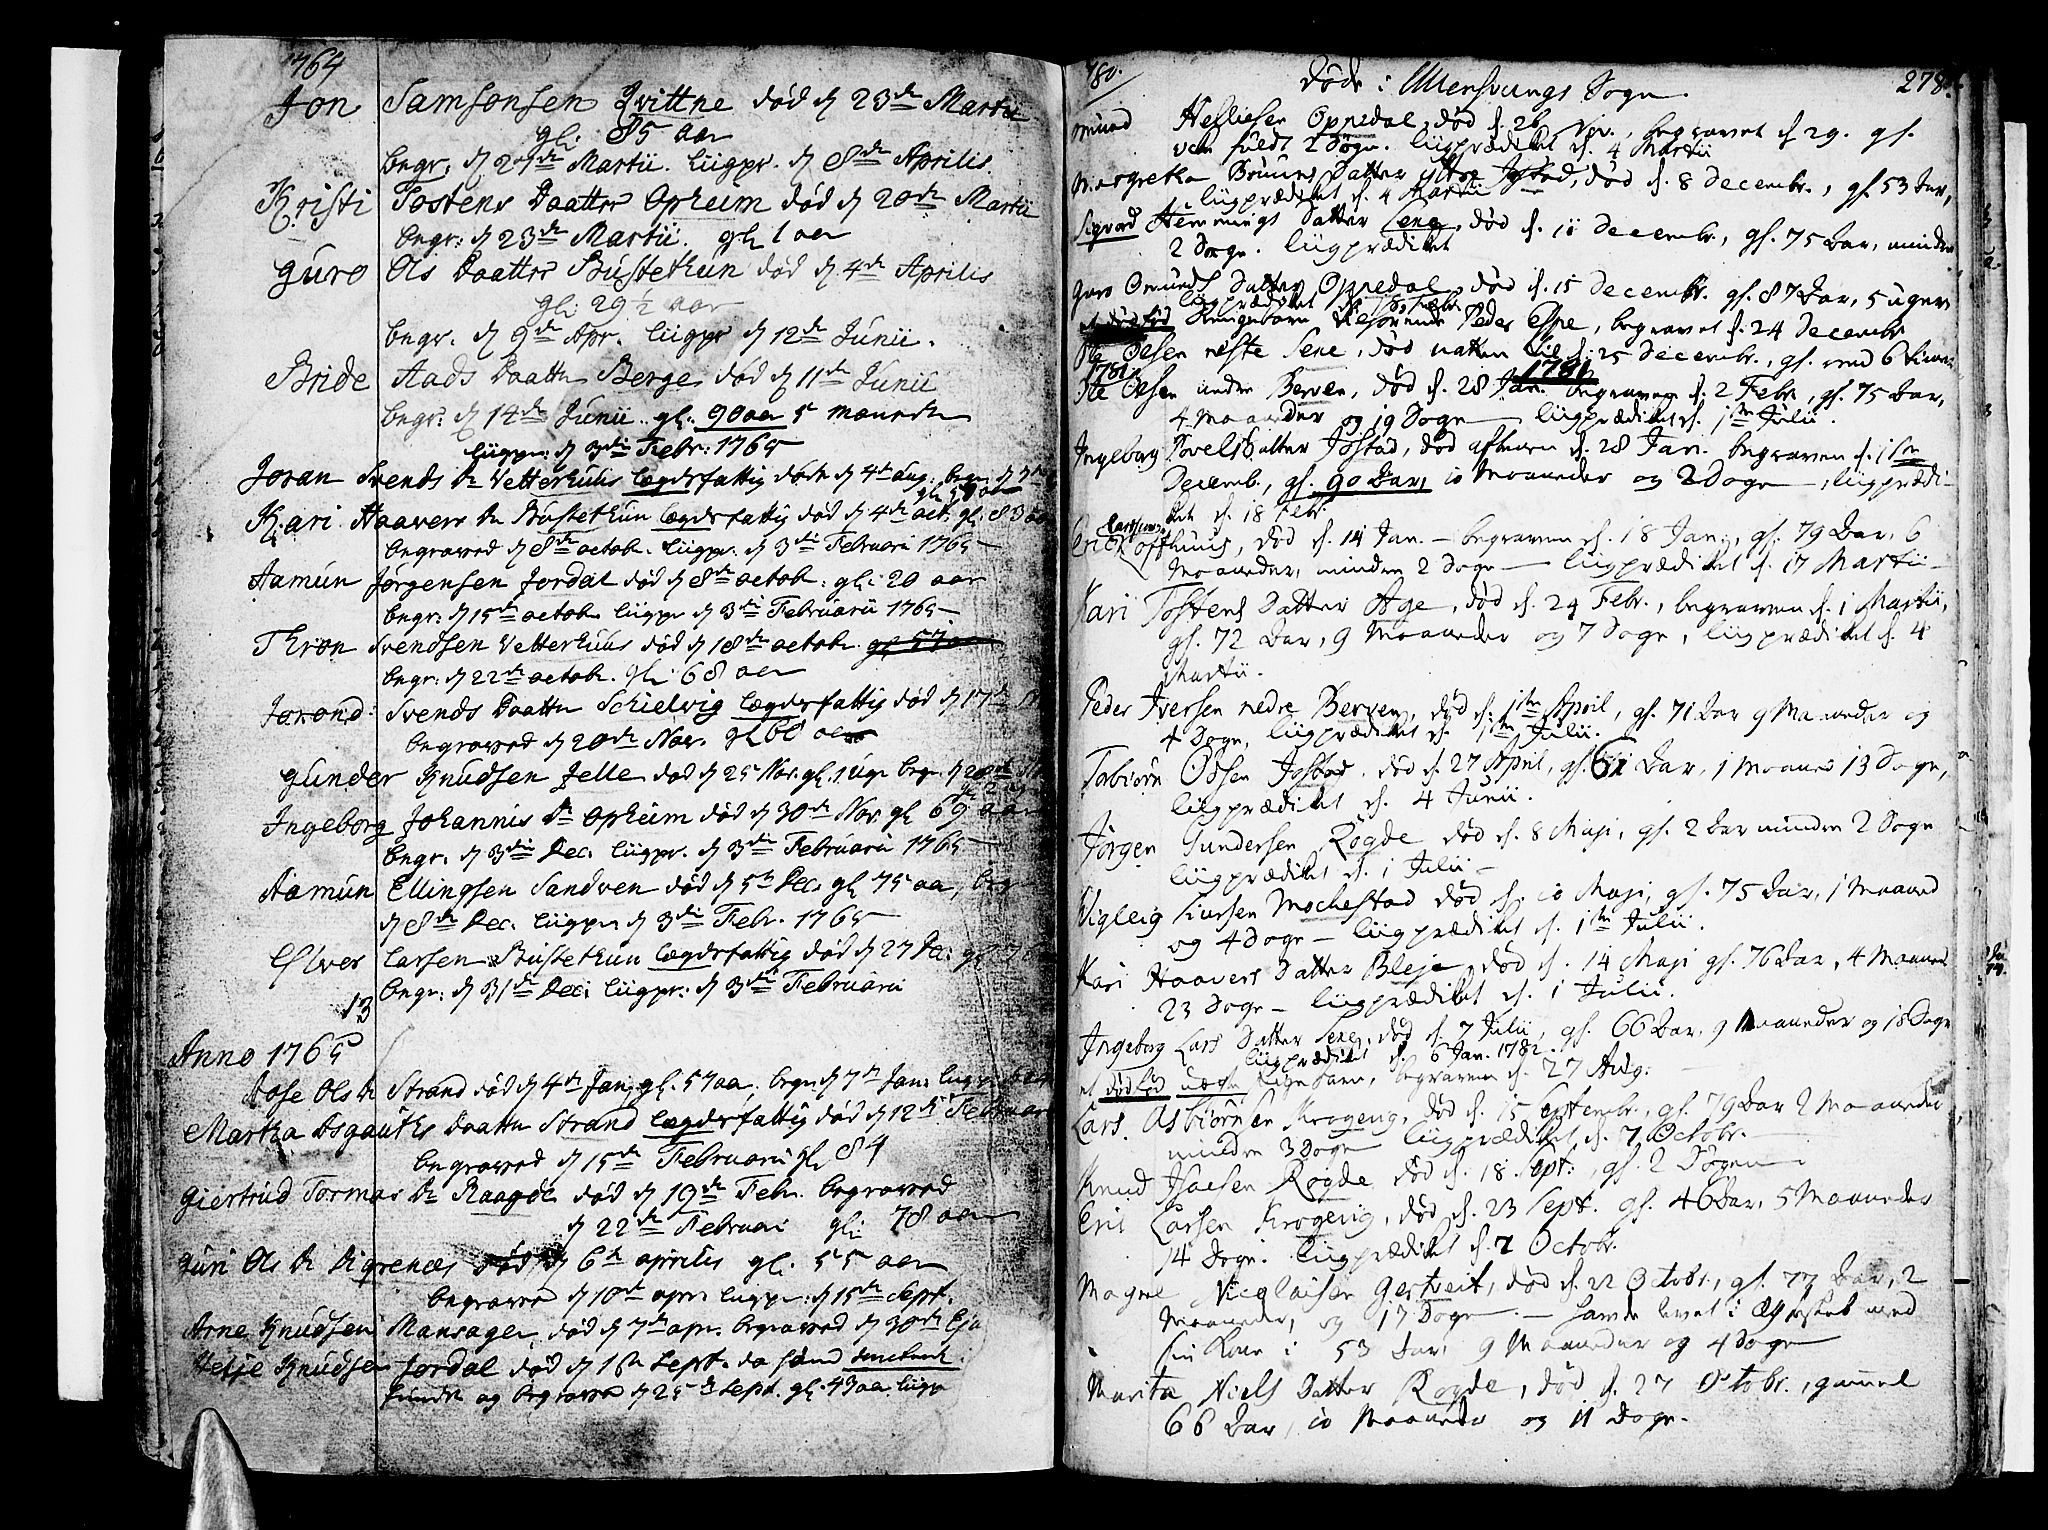 1764
Jon Samsonsen Qvittne død d 23de Martii
gl: 85 aar
begr: d 27de Martii. liigpr. d 8de Aprilis.
Kristi Tostens Daatter Opheim død d 20de Martii
begr: d 23de Martii. gl 1 aar
Guro Ols Daatter Bustethun død d 4de Aprilis
gl: 29½ aar
begr. d 9de Apr. liigpr d 12de Junii.
Bride Aads Daatter Berge død d 11de Junii
begr: d 14de Junii. gl: 90 aar 5 maaneder
liigpr: d 3die Febr: 1765
Joran Svends Dr Vetterhuus lægdsfattig døde d 4de Aug. begr. d 7de
gl: 59 aar
Kari Haavers Dr Bustethun lægdsfattig død d 4de oct: gl: 83 aar
begraved d 8de octob. liigpr. d 3die Februarii 1765
Aamun Jørgensen Jordal død d 8de octob: gl: 20 aar
begr: d 15de octob liigpr d 3die Februarii 1765
Thron Svendsen Vetterhuus død d 18de octob. gl 57 aar
begr: d 22de octob. gl: 68 aar
Jorond Svends Daatter Schielvig lægdsfattig død d 17de
begraved d 20de Nov. gl 60 aar
Gunder Knudsen Jelle død d 25 Nov. gl. 1 uge begr. d 28de
Ingeborg Johannis Dr Opheim død d 30de Nov gl 69 aar
begr. d 3die Dec: liigpr. d 3die Februarii 1765
Aamun Ellingsen Sandven død d 5te Dec. gl 75 aar, begr
d 8de Dec. liigpr d 3die Febr. 1765
Elver Larsen Bustethun lægdsfattig død d 27 Dec: gl 76
begr: d 31de Dec: liigpr: d 3die Februarii
13
Anno 1765
Aase Ols Dr Strand død d 4de Jan, gl. 57 aar. begr. d 7de Jan. liigpr
Martha Asgauths Daatter Strand lægdsfattig død d 12de Februarii
begraved d 15de Februarii gl: 84
Giertrud Tormos Dr Raagde død d 19de Febr. begraved
d 22de Februari gl: 78 aar
Guri Ols Dr Digrenæs død d 6te aprilis gl: 55 aar
begraved d 10de apr. liigpr: d 15de Sept:
Arne Knudsen Mansager, død d 7de apr. begraved d 30de
Helje Knudsen Jordal død d 1ste Sept. da hand
fundet og begraved d 25de Sept. gl. 43 aar. liigpr
1780. Døde i Ullensvangs Sogn. 278.
Omund Helliesen Oppedal, død d. 26 Nov., begravet d 29. gl.
2 Dogn. liigprædiket d. 4 Martii
Margretha Brunns Datter Jostad, død d. 8 Decembr., gl. 53 Aar,
liigprædiket d. 4 Martii
Sigvord Hemmings Datter Lene, død d. 10 Decembr., gl. 75 Aar, minder
2 Dogn. liigprædiket
Guro Omunds Datter Oppedal, død d. 15 Decembr. gl. 87 Aar, 5 uger
liigprædiket d. 18 Febr.
et dødfød Drengebarn tilhørende Peder Espe, begravet d. 24 Decembr
Ole Olsen neste Lene, død natten til d. 25 Decembr., gl. ved 6 timer
1781. 1781
Ole Olsen indre Berven, død d. 28 Jan. begraven d. 2 Febr., gl. 75 Aar,
4 Maaneder og 19 Dogn — liigprædiket d. 1ste Julii.
Ingeborg Povels Datter Jostad, død aftenen d. 28 Jan. begraven d. 1ste
Decemb., gl. 90 Aar, 10 Maaneder og 2 Dogn —, liigprædi-
ket d. 18 Febr.
Erick Lofthuus, død d. 14 Jan. — begraven d. 18 Jan., gl. 79 Aar, 6
Maaneder, minder 2 Dogn — liigprædiket d. 17 Martii —
Kari Tostens Datter Age, død d. 24 Febr., begraven d. 1 Martii,
gl. 72 Aar, 9 Maaneder og 7 Dogn, liigprædiket d. 4
Martii.
Peder Iversen nedre Berven, død d. 1ste April, gl. 71 Aar 9 Maaneder og
4 Dogn, liigprædiket d. 1ste Julii.
Torbiørn Odsen Jostad, død d. 27 April, gl. 61 Aar, 1 Maaned 13 Dogn,
liigprædiket d. 4 Junii.
Jørgen Gundersen Røgde død d. 8 Maji, gl. 2 Aar minder 2 Dogn
liigprædiket d. 1 Julii —
Vigleig Iversen Mochestad død d. 10 Maji, gl. 75 Aar, 1 Maaned
og 4 Dogn — liigprædiket d. 1ste Julii.
Kari Haavers Datter Bleje, død d. 14 Maji gl. 76 Aar, 4 Maaned
23 Dogn — liigprædiket d. 1 Julii.
Ingeborg Lars Datter Lene, død d. 7 Julii, gl. 66 Aar, 9 Maaneder og 18 Dogn
liigprædiket d. 6 Jan. 1782
et dødfød uægte Pigebarn, begraven d. 27 Aug:
Lars Asbiørnsen Krogevig, død d. 15 Septembr., gl. 79 Aar 2 Maaneder
minder 3 Dogn liigprædiket d. 7 Octobr. —
Knud Isacsen Røgde død d. 18 Sept:, gl. 2 Dogn
Eric Larsen Krogevig, død d. 23 Sept. gl. 46 Aar, 5 Maaneder
14 Dogn. liigprædiket d. 7 Octobr.
Magne Nicolaisen Gertveit, død d. 22 Octobr., gl. 77 Aar, 2
Maaneder, og 17 Dogn — havde levet i Ægteskab med
sin Kone i 53 Aar 9 Maaneder og 4 Dogn
Marita Niels Datter Røgde, død d. 27 Octobr., gammel
66 Aar, 10 Maaneder og 11 Dogn.